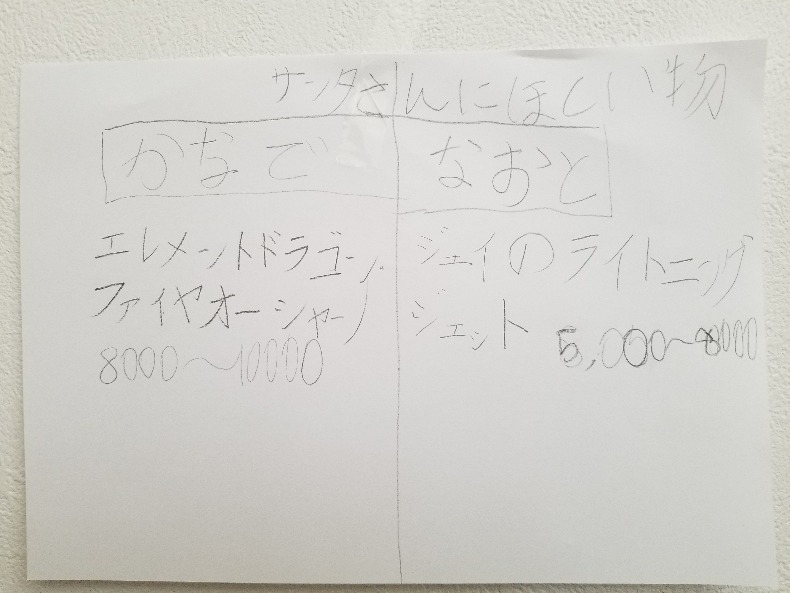 サンタさんにほしい物
かなで
エレメントドラゴン
ファイヤオーシャン
8000〜10000
なおと
ジェイのライトニング
ジェット
5,000〜8000